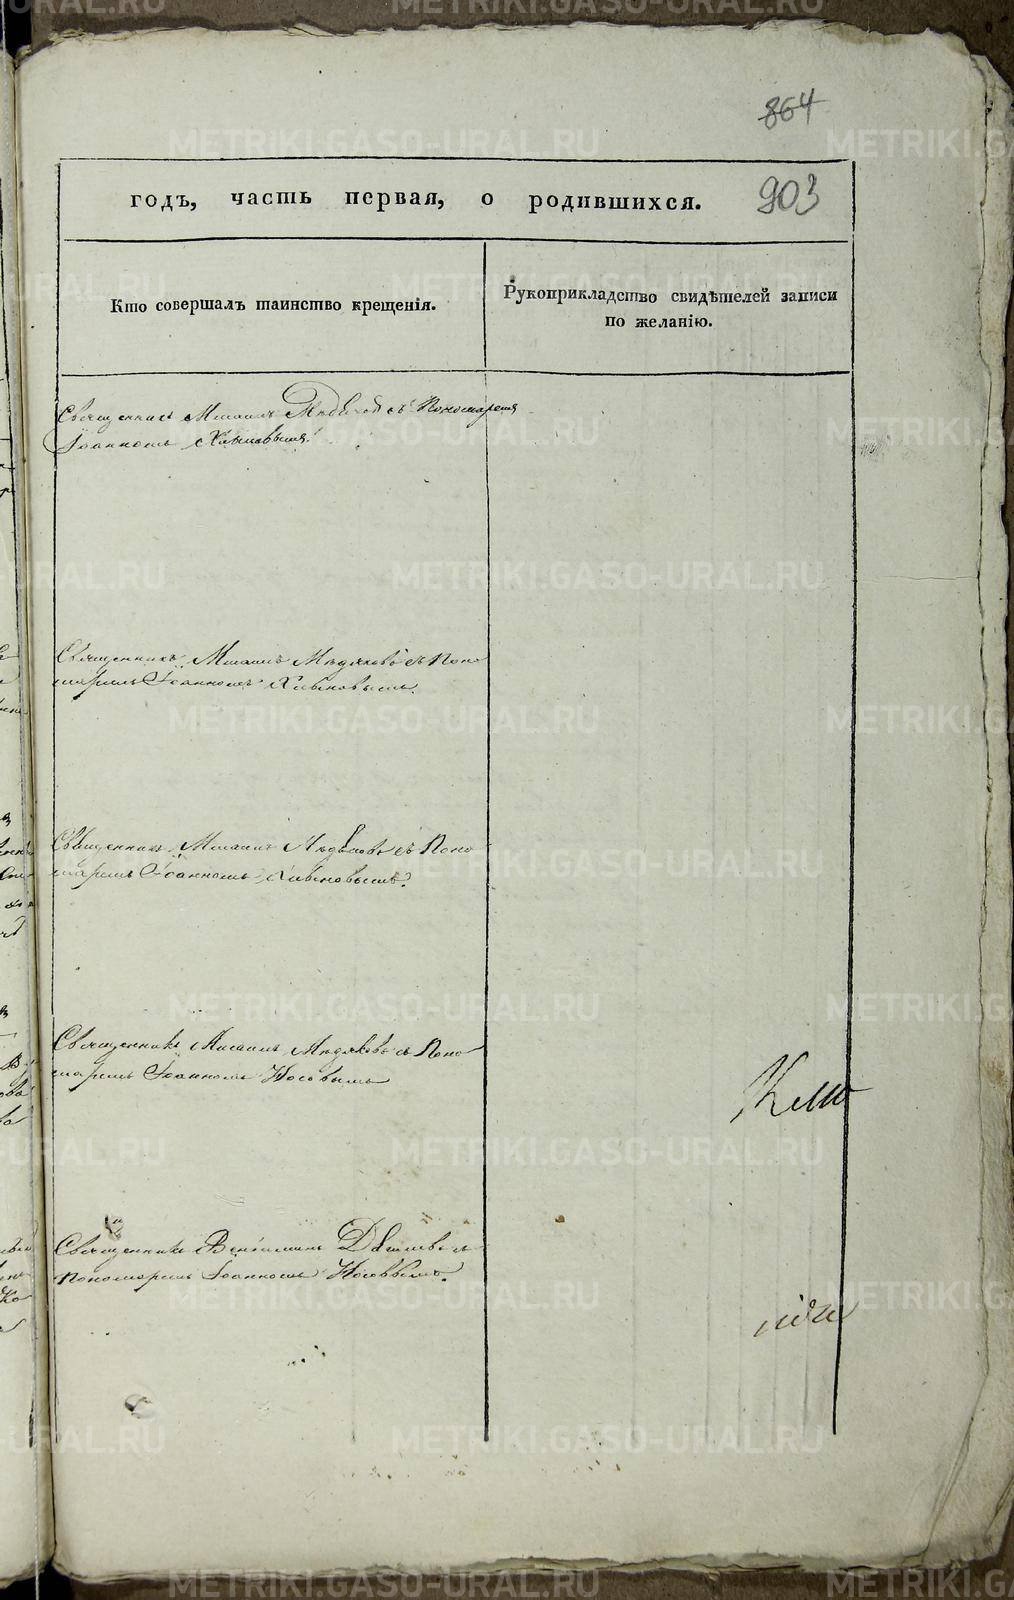 864
903
годъ, часть первая, о родившихся.
Кто совершалъ таинство крещенія.
Рукоприкладство свидѣтелей записи
по желанію.
Священникъ Михаилъ съ Пономаремъ
Іоанномъ Хлыновымъ.
Священникъ Михаилъ Мѣдяковъ съ Поно
маремъ Іоанномъ Хлыновымъ.
Священникъ Михаилъ Мѣдяковъ съ Поно
маремъ Іоанномъ Хлыновымъ.
Священникъ Михаилъ Мѣдяковъ съ Поно
маремъ Іоанномъ Носовымъ
Священникъ Веніаминъ съ
Пономаремъ Іоанномъ Носовымъ.
METRIKI.GASO-URAL.RU